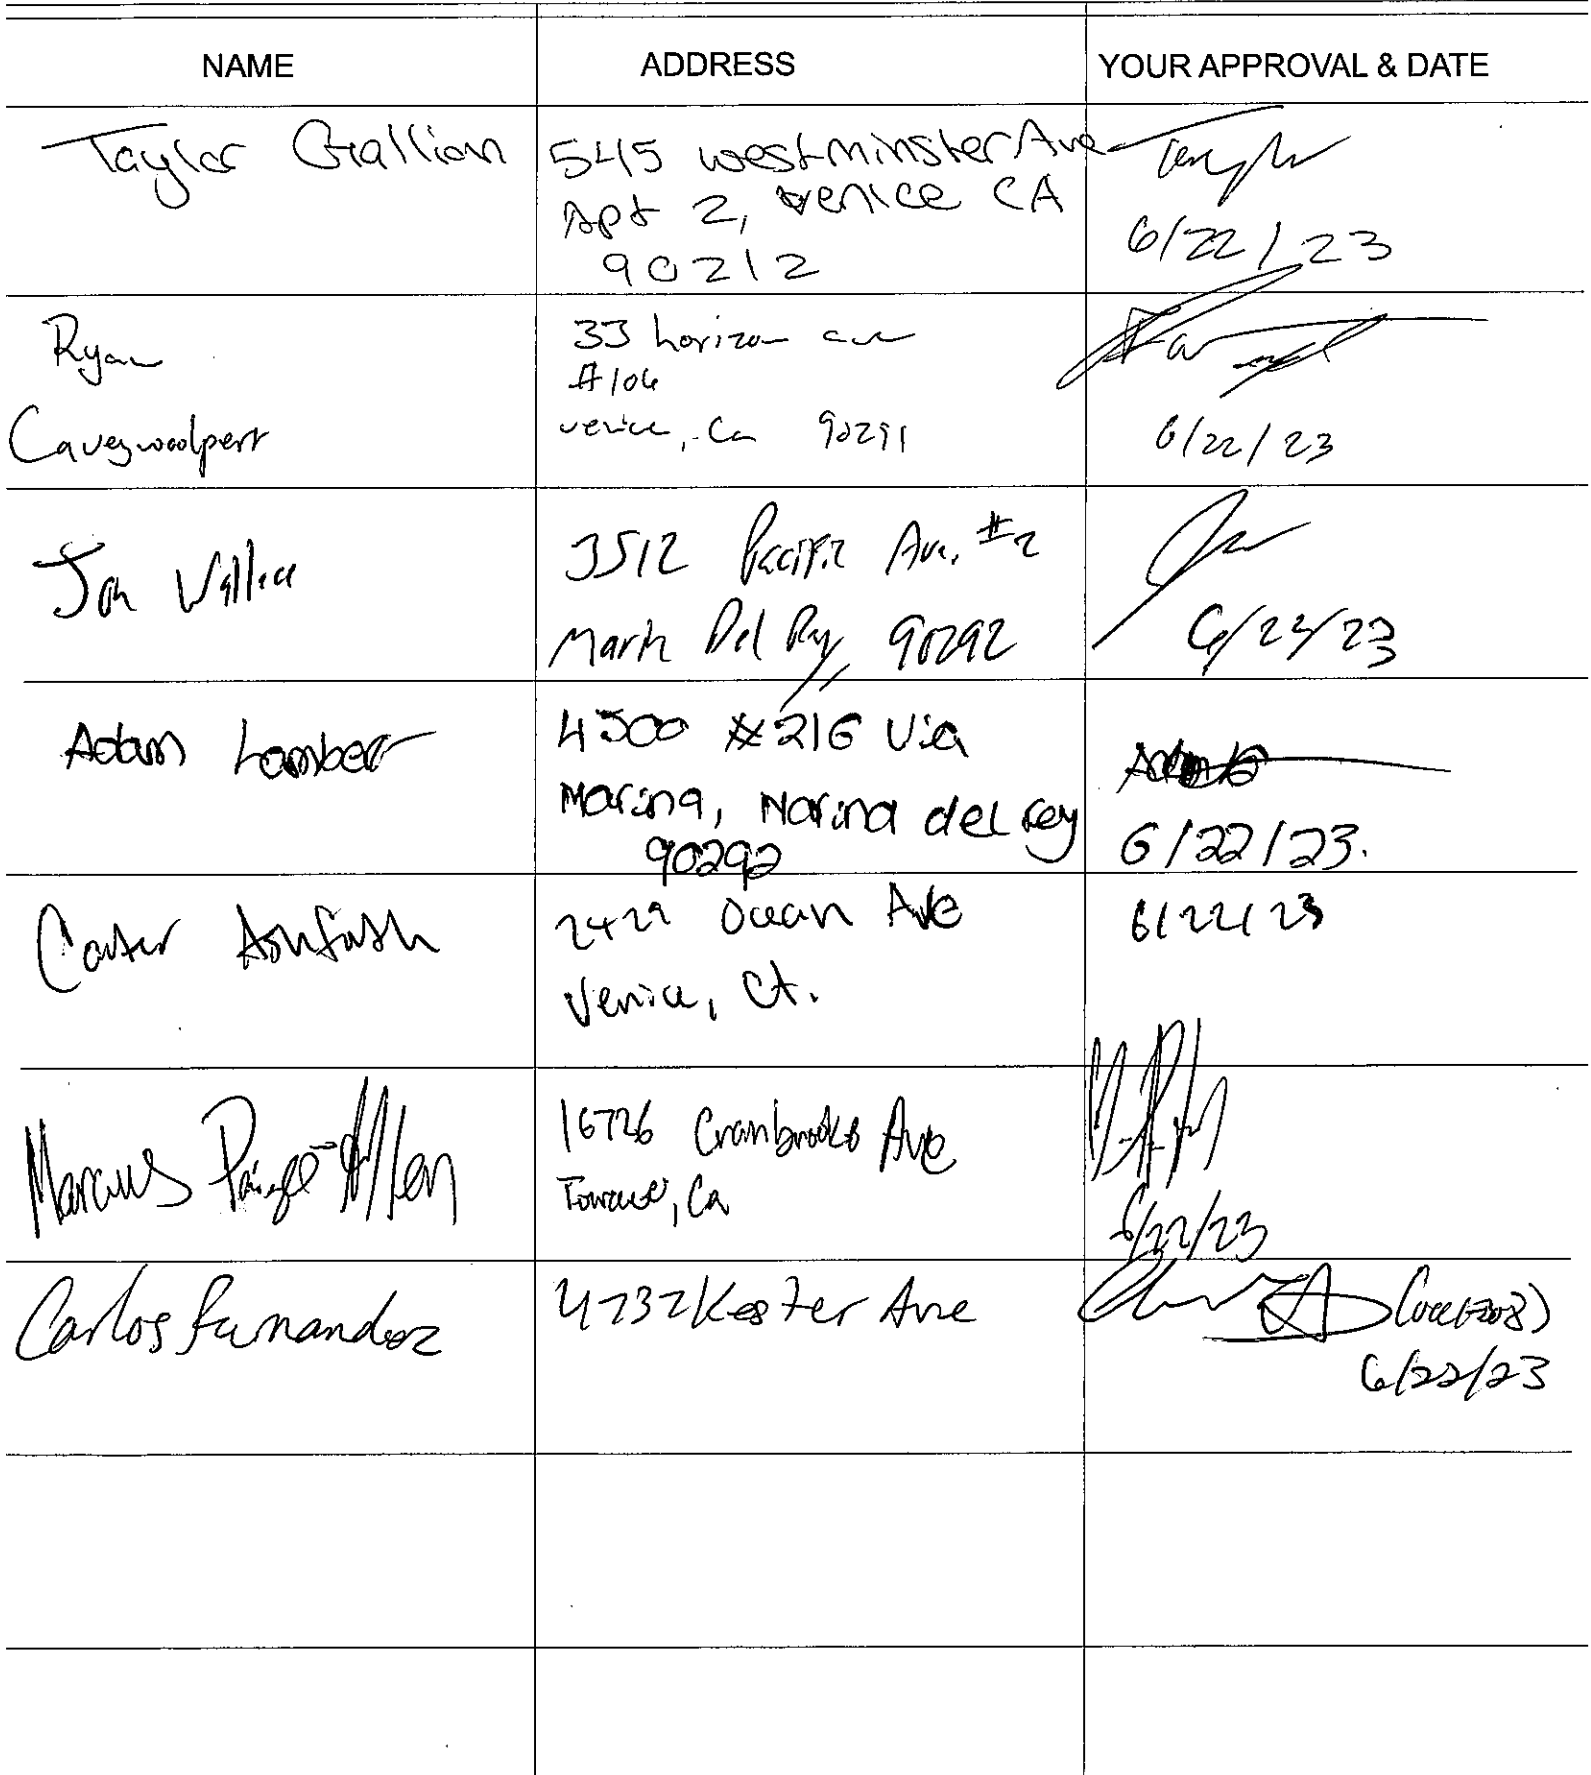 NAME ADDRESS YOUR APPROVAL & DATE
Taylor Gallion
545 westminster Ave
Apt 2, venice CA
90212
6/22/23
Ryan
Caveywoolpert
33 horizon ave
#106
venice, Ca 90291
6/22/23
Jon
3512 Pacific Ave. #2
Marin Del Rey 90292
6/23/23
Adam Lambert
4500 #216 Via
Marina, Marina del rey
90292
6/22/23.
Carter
2429 Ocean Ave
Venice, CA.
6/22/23
Marcus Paige-Allen
16726 Cranbrooke Ave
Torrance, Ca
6/22/23
Carlos Fernandez
4732 Kester Ave
6/22/23